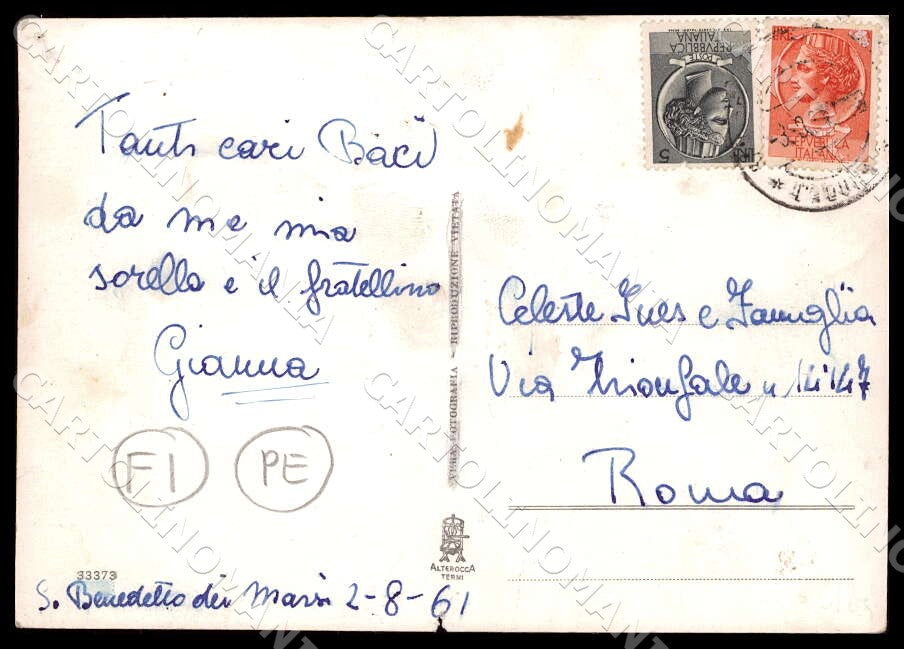 Tanti cari Baci
da me mia
sorella e il fratellino
Gianna
FI PE
33373
S. Benedetto dei Marsi 2-8-61
VERA FOTOGRAFIA - RIPRODUZIONE VIETATA
ALTEROCCA
TERNI
POSTE
REPVBBLICA
ITALIANA
5
LIRE
LIRE
REPVBBLICA
ITALIANA
Celeste Ines e Famiglia
Via Trionfale n, 14147
Roma
CARTOLINOMANIA